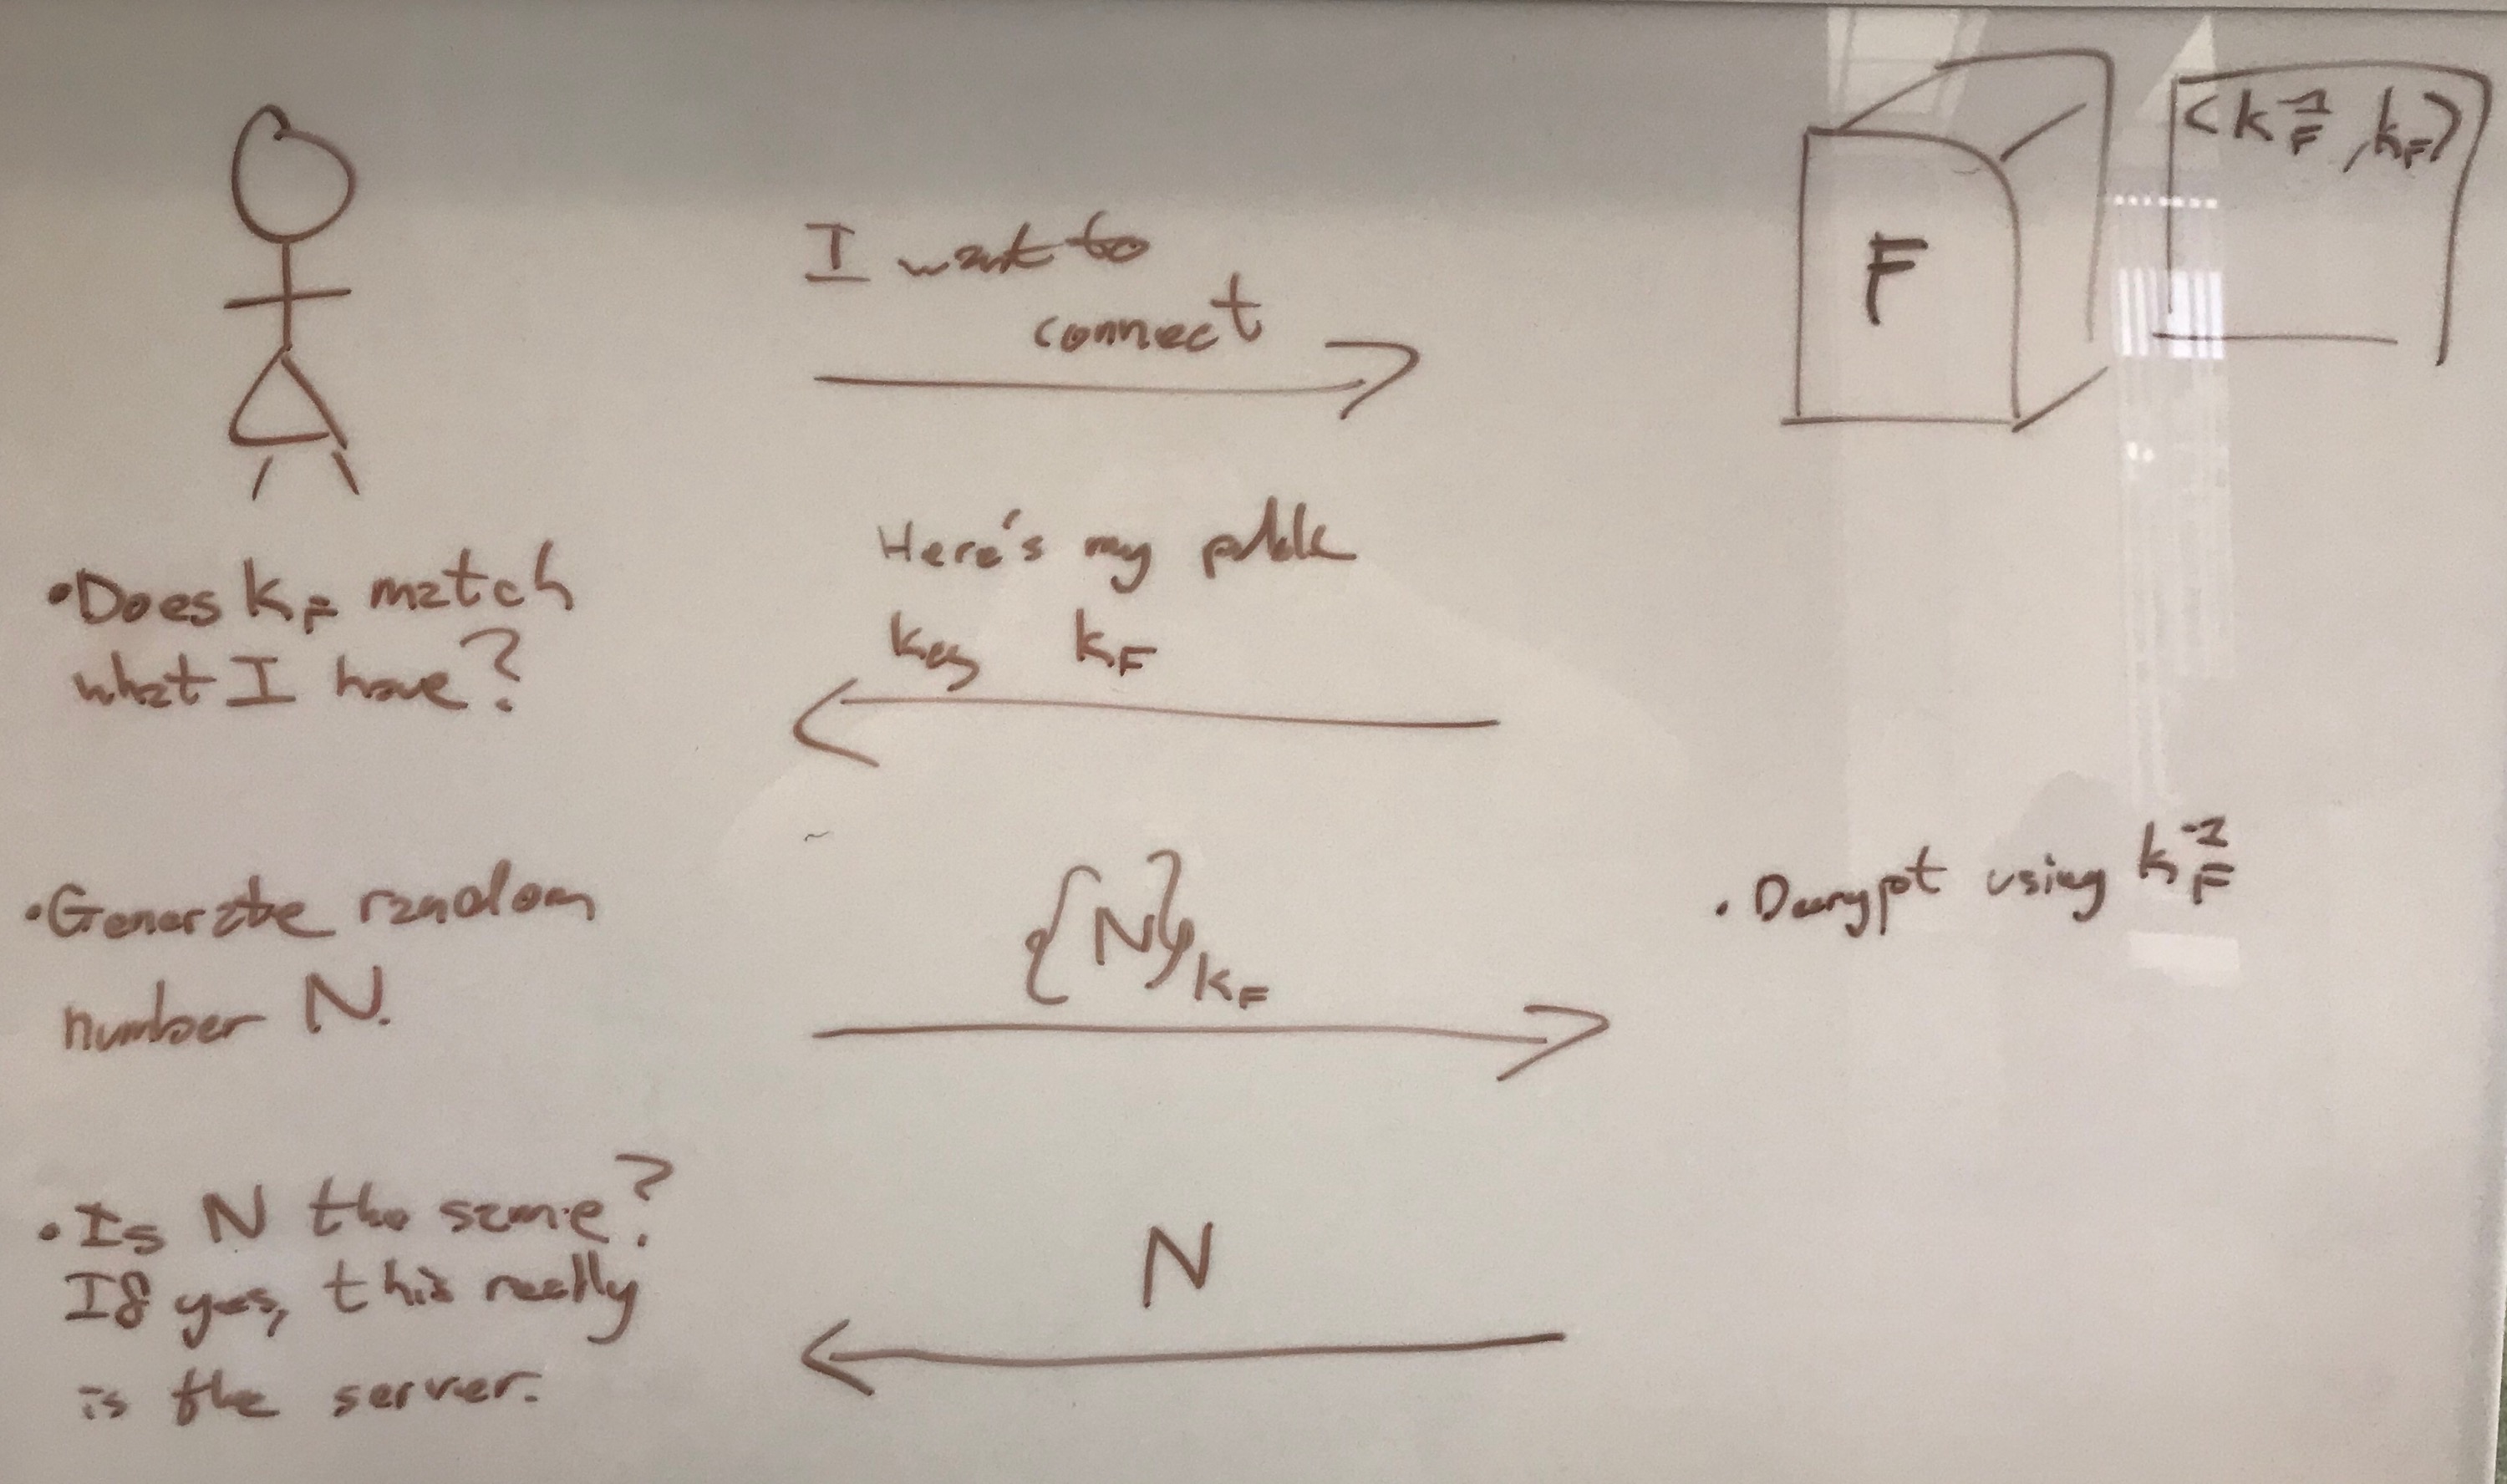 <k_F^-1, k_F>
F
I want to
connect
Here's my public
key k_F
•Does k_F match
what I have?
{N}_k_F
•Generate random
number N.
•Decrypt using k_F^-1
N
•Is N the same?
If yes, this really
is the server.